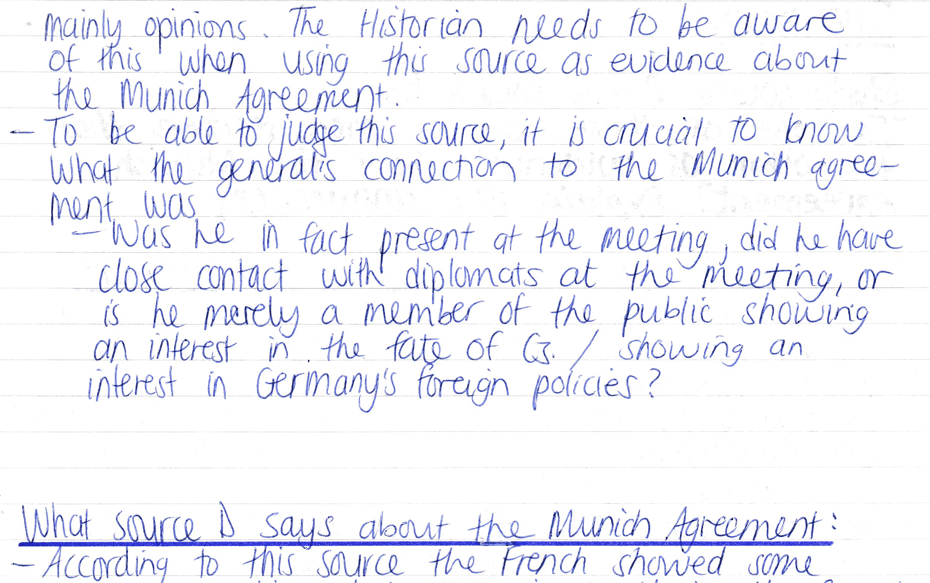 mainly opinions. The Historian needs to be aware
of this when using this source as evidence about
the Munich Agreement.
- To be able to judge this source, it is crucial to know
what the general's connection to the Munich agree-
ment was
- Was he in fact present at the meeting, did he have
close contact with diplomats at the meeting, or
is he merely a member of the public showing
an interest in the fate of Cz. / showing an
interest in Germany's foreign policies?
What source D says about the Munich Agreement:
- According to this source the French showed some